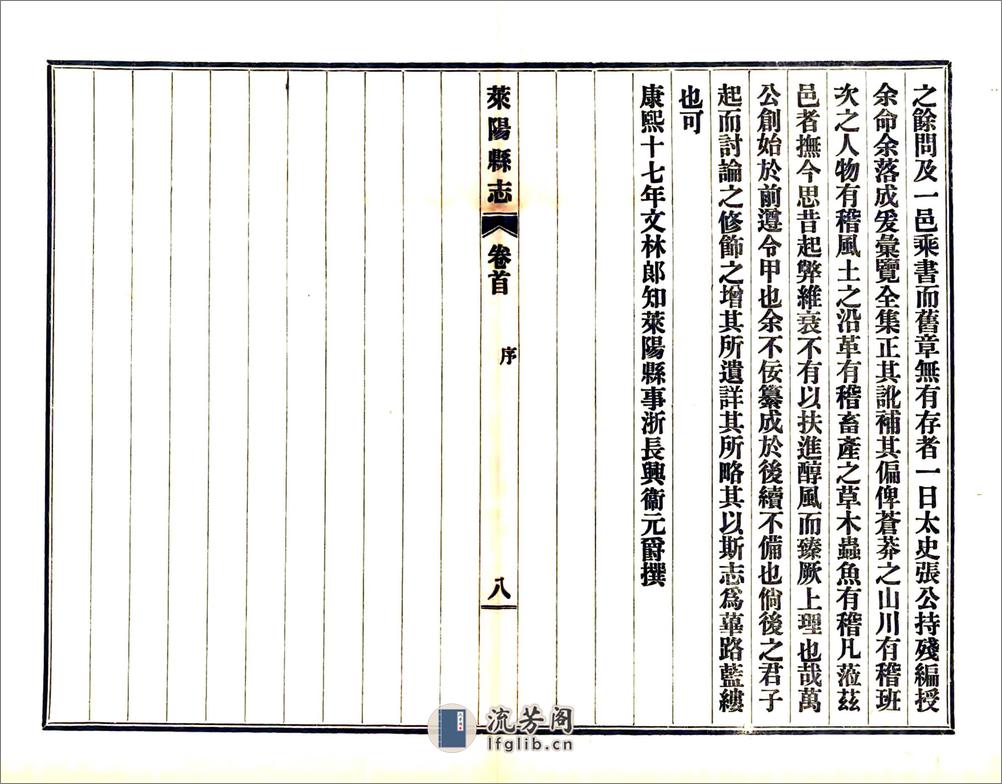 之餘問及一邑乘書而舊章無有存者一日太史張公持殘編授
余命余落成爰彙覽全集正其訛補其偏俾蒼莽之山川有稽班
次之人物有稽風土之沿革有稽畜產之草木蟲魚有稽凡蒞茲
邑者撫今思昔起弊維衰不有以扶進醇風而臻厥上理也哉萬
公創始於前遵令甲也余不佞纂成於後續不備也倘後之君子
起而討論之修飾之增其所遺詳其所略其以斯志為蓽路藍縷
也可
康熙十七年文林郎知萊陽縣事浙長興衞元爵撰
萊陽縣志
卷首
序
八
流芳阁
lfglib.cn